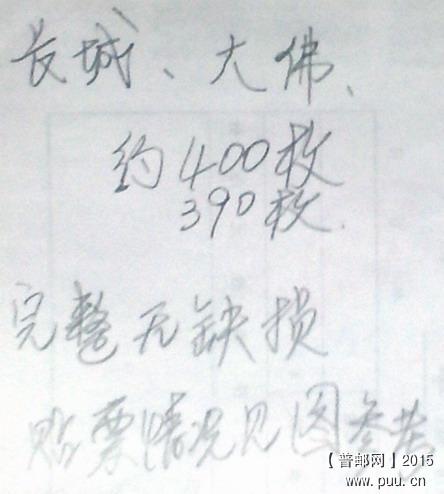 长城、大佛、
约400枚
390枚.
完整无缺损
贴票情况见图参考
【普邮网】2015
www.puu.cn